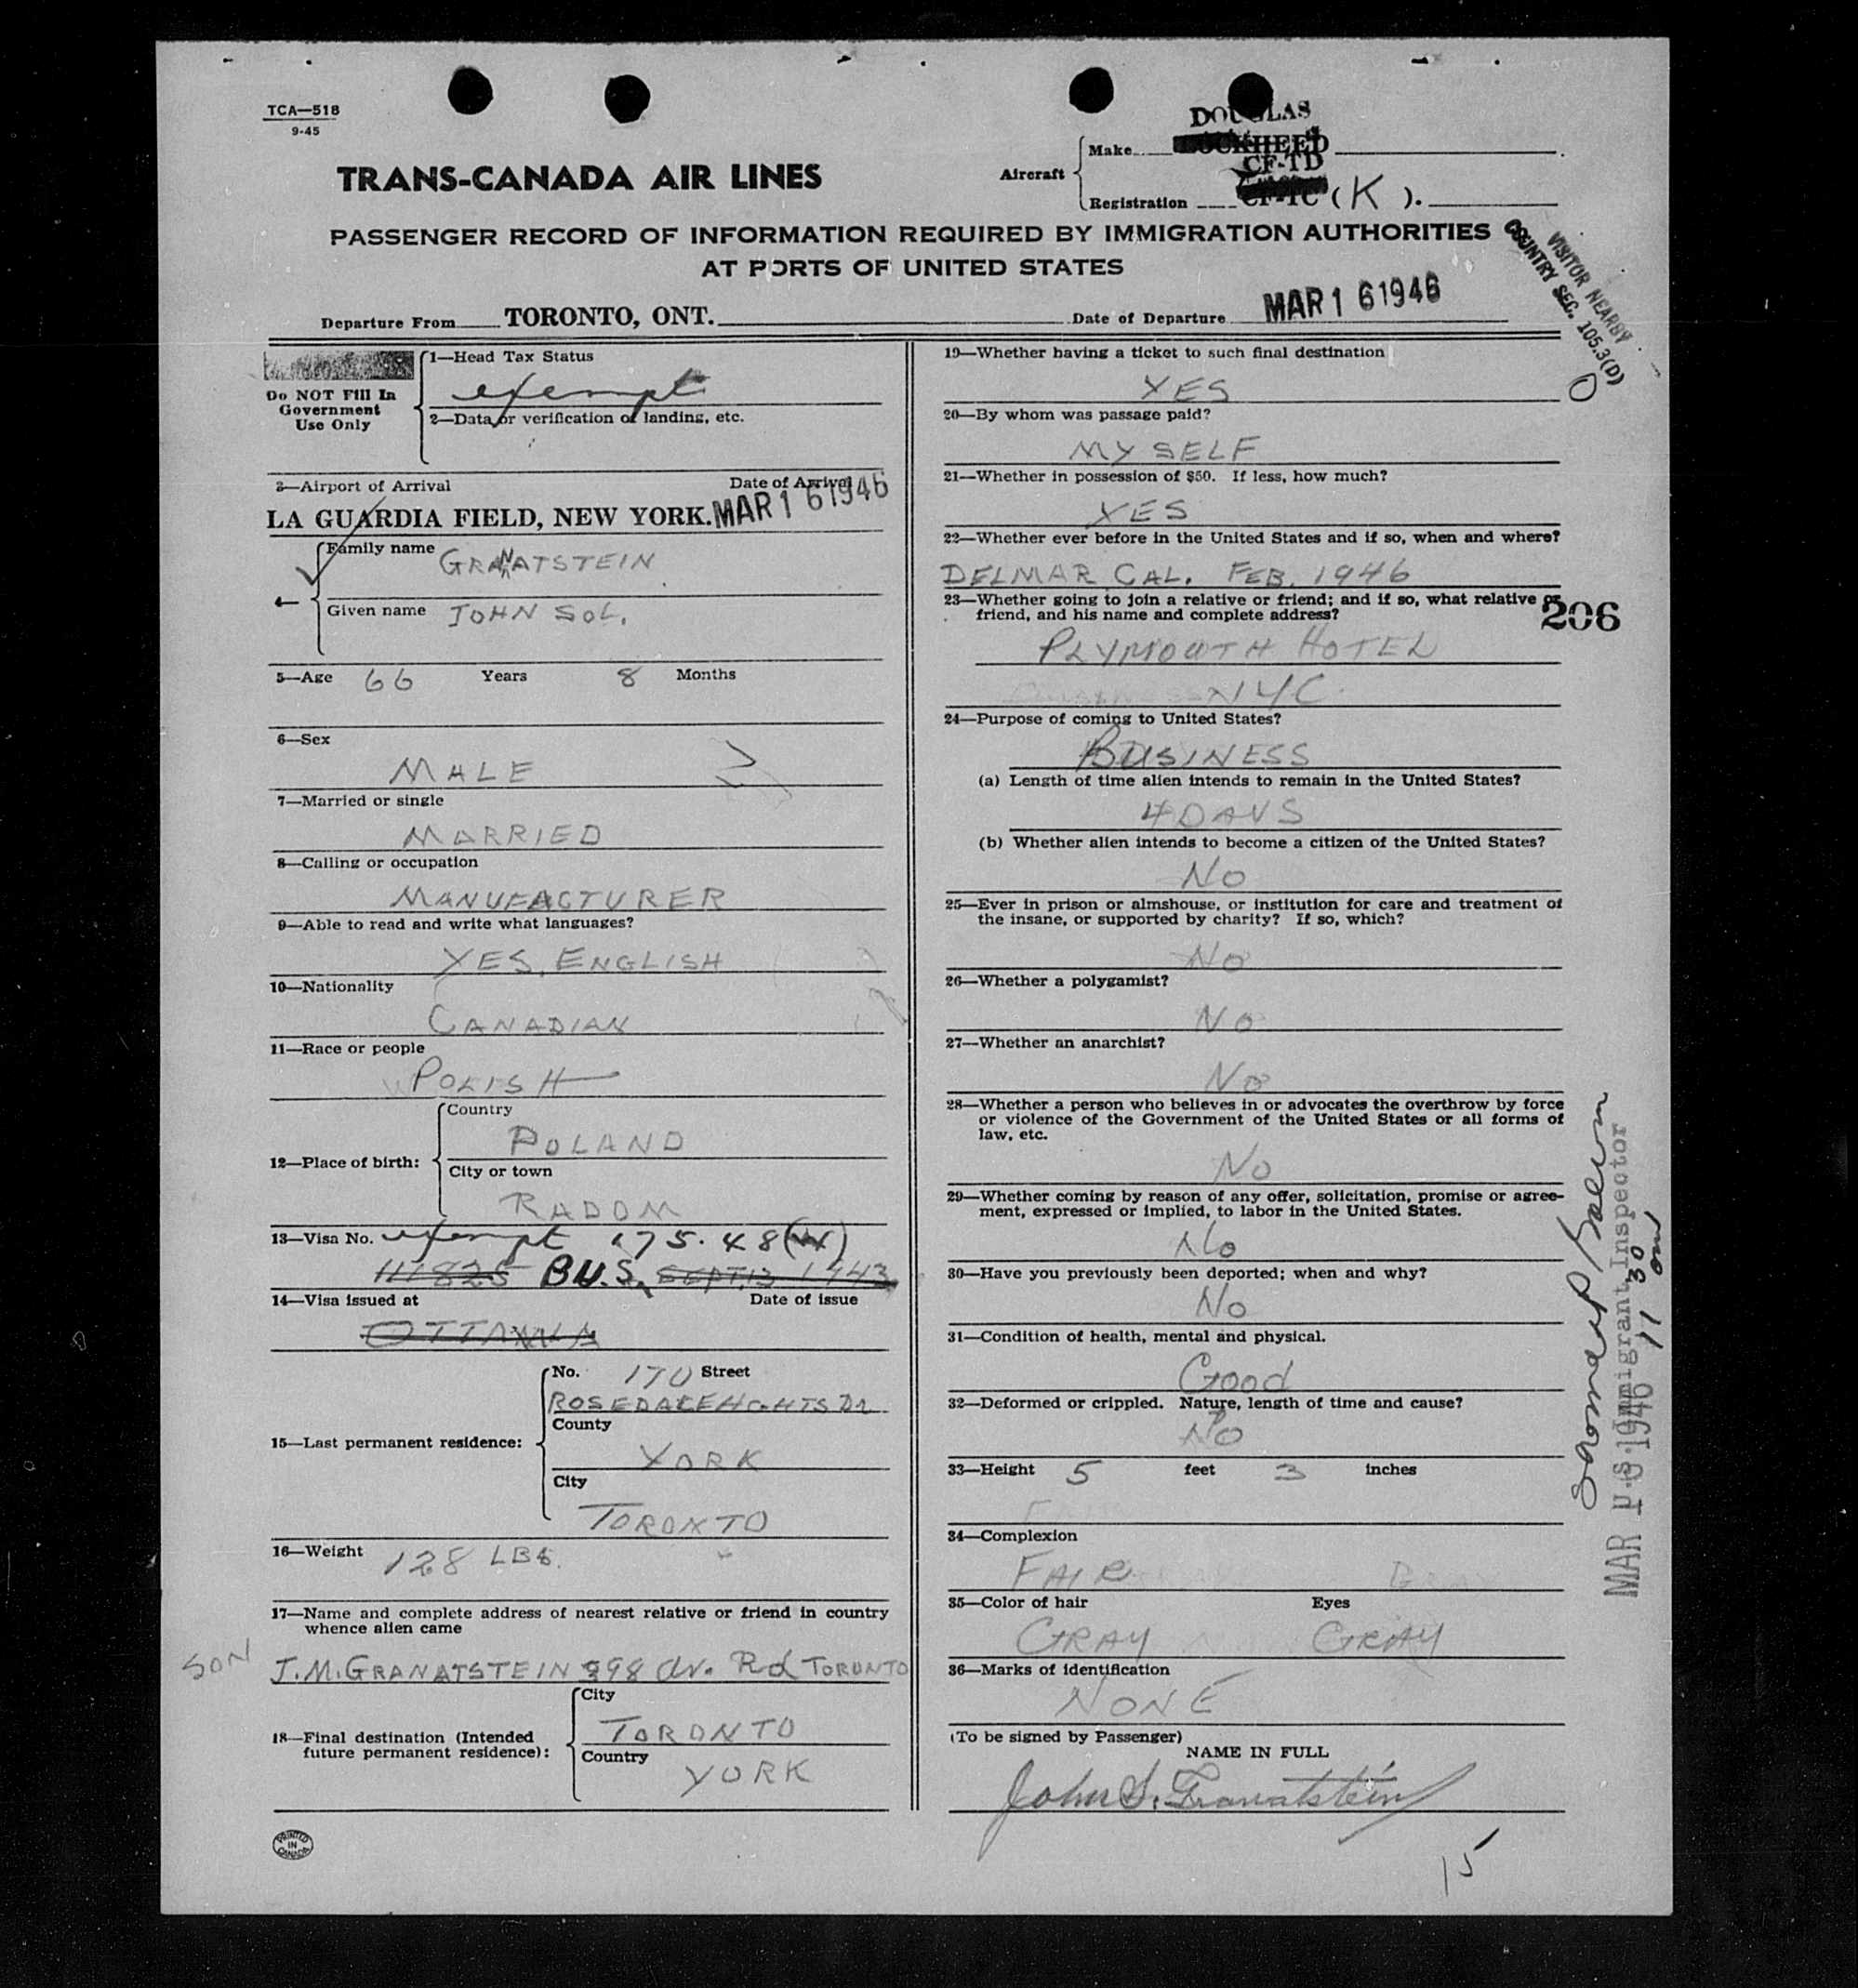 TCA—518
9-45
DOUGLAS
Aircraft
Make LOCKHEED
CF-TD
Registration CF-TC (K).
TRANS-CANADA AIR LINES
PASSENGER RECORD OF INFORMATION REQUIRED BY IMMIGRATION AUTHORITIES
AT PORTS OF UNITED STATES
VISITOR NEARBY
COUNTRY SEC. 105.3(D)
Departure From TORONTO, ONT. Date of Departure MAR 16 1946
Do NOT Fill In
Government
Use Only
1—Head Tax Status
exempt
2—Data or verification of landing, etc.
3—Airport of Arrival Date of Arrival
LA GUARDIA FIELD, NEW YORK. MAR 16 1946
4—
Family name GRANATSTEIN
Given name JOHN SOL.
5—Age 66 Years 8 Months
6—Sex
MALE
7—Married or single
MARRIED
8—Calling or occupation
MANUFACTURER
9—Able to read and write what languages?
YES, ENGLISH
10—Nationality
CANADIAN
11—Race or people
POLISH
12—Place of birth:
Country
POLAND
City or town
RADOM
13—Visa No. exempt 175.48
111825 BUS. SEPT. 13 1943
14—Visa issued at Date of issue
OTTAWA
15—Last permanent residence:
No. 170 Street
ROSEDALE HGHTS DR.
County
YORK
City
TORONTO
16—Weight 128 LBS.
17—Name and complete address of nearest relative or friend in country
whence alien came
SON J.M. GRANATSTEIN 398 Av. Rd TORONTO
18—Final destination (Intended
future permanent residence):
City
TORONTO
Country
YORK
PRINTED
IN
CANADA
19—Whether having a ticket to such final destination
YES
20—By whom was passage paid?
MYSELF
21—Whether in possession of $50. If less, how much?
YES
22—Whether ever before in the United States and if so, when and where?
DELMAR CAL. FEB. 1946
23—Whether going to join a relative or friend; and if so, what relative or
friend, and his name and complete address?
206
PLYMOUTH HOTEL
NYC.
24—Purpose of coming to United States?
BUSINESS
(a) Length of time alien intends to remain in the United States?
4 DAYS
(b) Whether alien intends to become a citizen of the United States?
NO
25—Ever in prison or almshouse, or institution for care and treatment of
the insane, or supported by charity? If so, which?
NO
26—Whether a polygamist?
NO
27—Whether an anarchist?
NO
28—Whether a person who believes in or advocates the overthrow by force
or violence of the Government of the United States or all forms of
law, etc.
NO
29—Whether coming by reason of any offer, solicitation, promise or agree-
ment, expressed or implied, to labor in the United States.
NO
30—Have you previously been deported; when and why?
NO
31—Condition of health, mental and physical.
Good
32—Deformed or crippled. Nature, length of time and cause?
NO
33—Height 5 feet 3 inches
34—Complexion
FAIR
35—Color of hair Eyes
GRAY GRAY
36—Marks of identification
NONE
(To be signed by Passenger)
NAME IN FULL
John S. Granatstein
15
U.S. Immigrant Inspector
MAR 16 1946 11 30